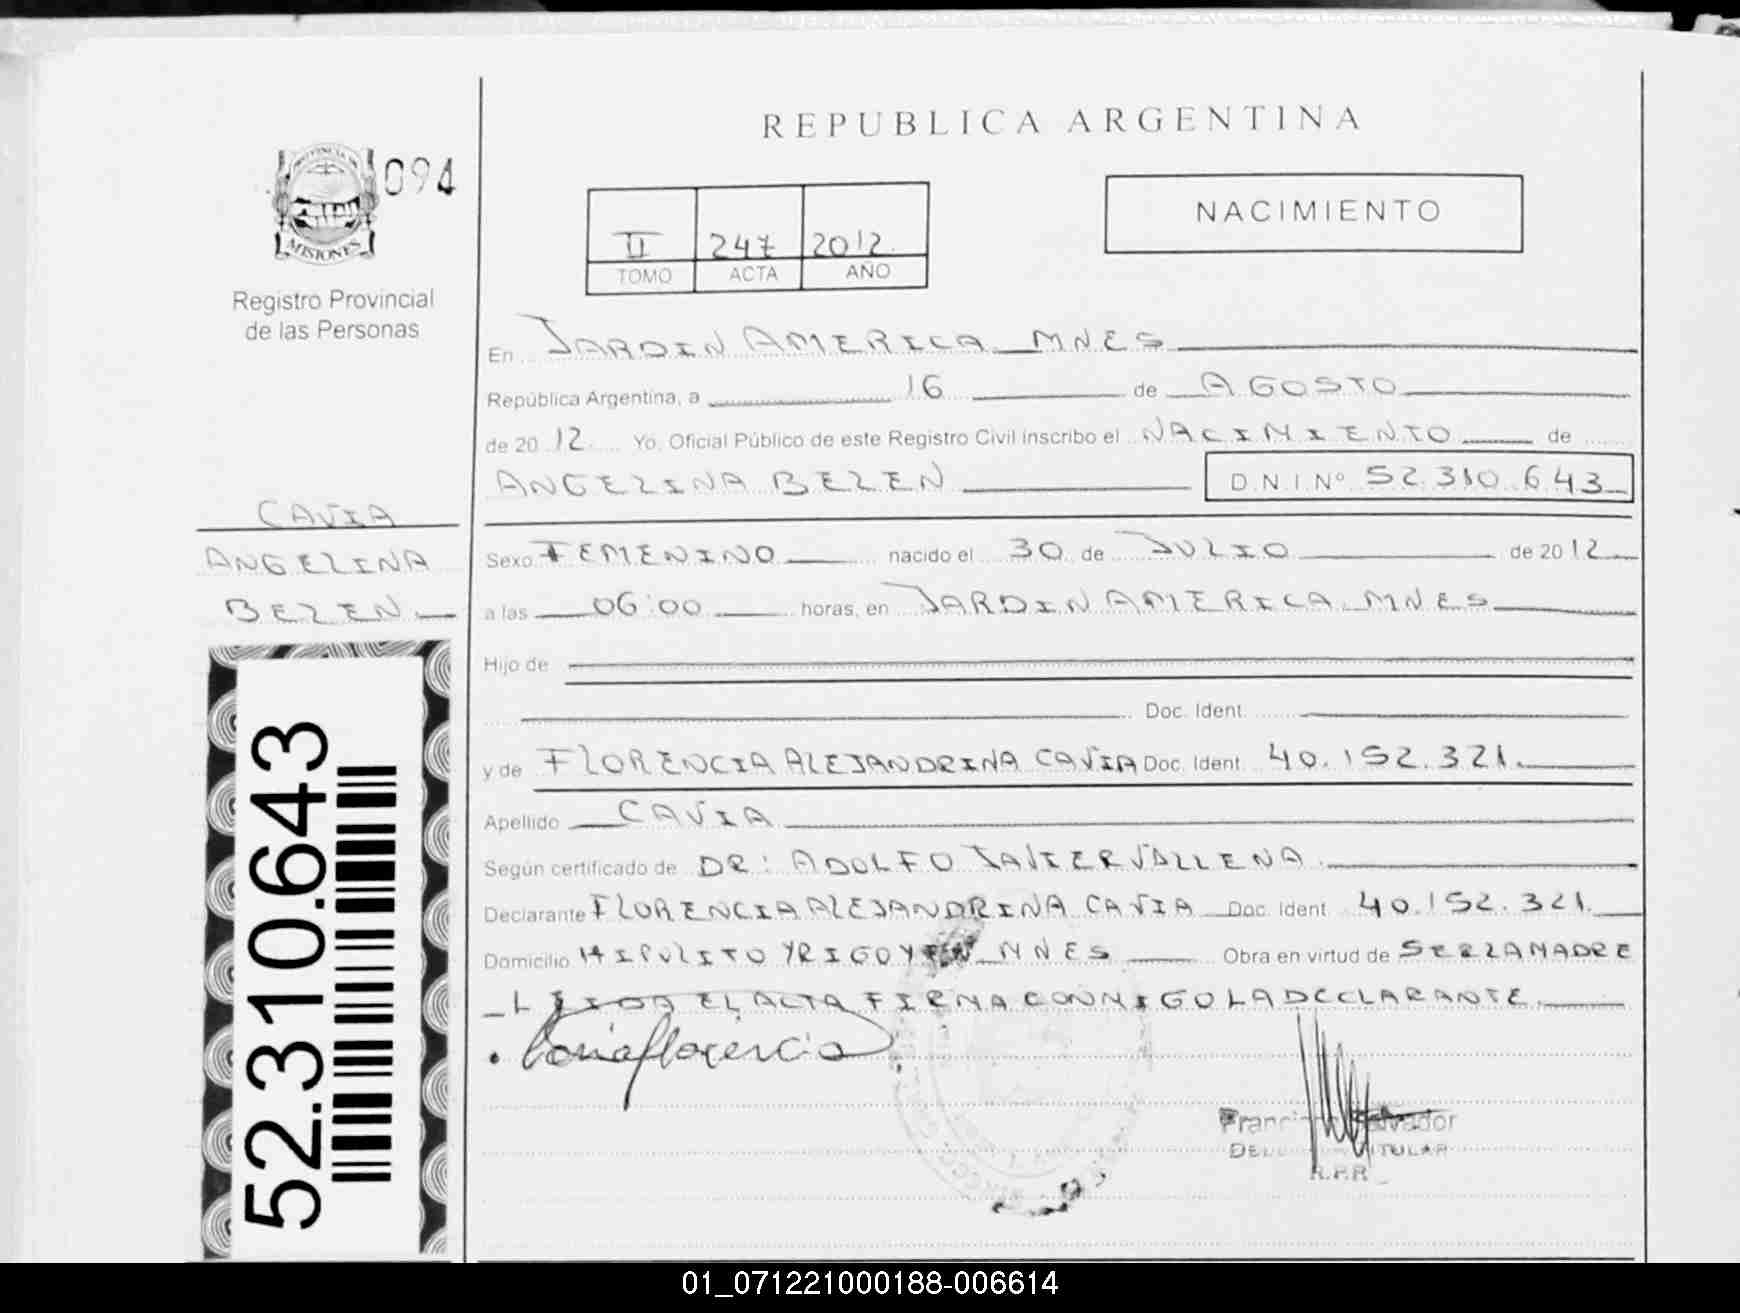 REPUBLICA ARGENTINA
PROVINCIA DE
MISIONES
094
Registro Provincial
de las Personas
II 247 2012
TOMO ACTA AÑO
NACIMIENTO
En JARDIN AMERICA MNES
República Argentina, a 16 de AGOSTO
de 20 12. Yo, Oficial Público de este Registro Civil inscribo el NACIMIENTO de
ANGELINA BELEN D.N.I.Nº 52.310.643
CAVIA
ANGELINA
BELEN
Sexo FEMENINO nacido el 30 de JULIO de 20 12
a las 06:00 horas, en JARDIN AMERICA MNES
Hijo de
Doc. Ident.
y de FLORENCIA ALEJANDRINA CAVIA Doc. Ident. 40.152.321.
Apellido CAVIA
Según certificado de DR: ADOLFO JAVIER VALLENA
Declarante FLORENCIA ALEJANDRINA CAVIA Doc. Ident. 40.152.321.
Domicilio HIPOLITO YRIGOYEN MNES Obra en virtud de SER LA MADRE
LEIDA EL ACTA FIRMA CONMIGO LA DECLARANTE.
Cavia florencia
Salvador
TITULAR
R.P.P.
52.310.643
01_071221000188-006614